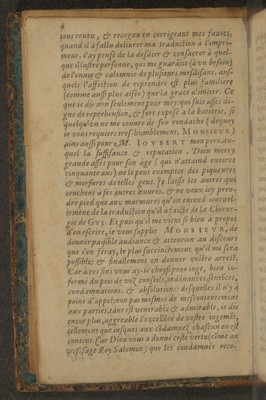 4
tout reueu, & recogneu en corrigeant mes fautes,
quand il a fallu deliurer ma traduction à l'impri-
meur. I'ay pensé de la dedier & consacrer à quel-
que illustre personne, qui me guarãtit (à vn besoin)
de l'enuie & calomnie de plusieurs mesdisans, aus-
quels l'affection de reprendre est plus familiere
(comme aussi plus aisée) que la grace d'imiter. Ce
que ie dis non seulement pour moy: qui suis assés di-
gne de reprehension, & fort exposé à la batterie, si
quelqu'vn ne me couure de son rondache (duquel
ie vous requiers tres-humblement, MONSIEVR)
ains aussi pour M. IOVBERT mon pere, du-
quel la suffisance & reputation (Dieu mercy
grande assés pour son age) qui n'attaind encores
cinquante ans) ne le peut exempter des piqueures
& morsures de telles gens. Ie laisse les autres qui
touchent à ses autres œuures, & ne veux icy pren-
dre pied que aux murmures qu'on entend
lement de la traduction qu'il a faicte de la Chirur-
gie de GVI. Et pour qu'il me vient si bien à propos
d'en escrire, ie vous supplie MONSIEVR, de
donner paisible audiance & attention au discours
que i'en feray, le plus succinctement qu'il me sera
possible: & finallement en donner vostre arrest.
Car à ces fins vous ay-ie choysi pour iuge, bien in-
formé du pois de voz conseils,
condamnations, & absolutions: desquelles il n'y à
point d'appel: non pas mesmes de mescontentement
aux parties, tant est venerable & admirable, ie dis
encor plus, aggreable l'excellẽce de vostre iugemẽt,
tellement que iusques aux cõdamnez chascun en est
content. Car Dieu vous a donné ceste vertu (comme au
tres-sage Roy Salomon) que les condamnés reco-